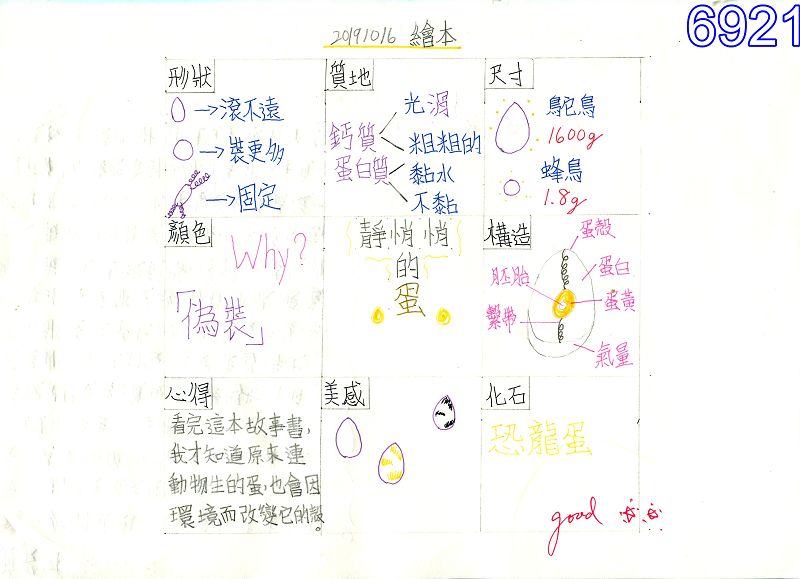 6921
20191016 繪本
形狀
→滾不遠
→裝更多
→固定
質地
鈣質
蛋白質
光滑
粗粗的
黏水
不黏
尺寸
鴕鳥
1600g
蜂鳥
1.8g
顏色
Why?
「偽裝」
靜悄悄
的
蛋
構造
蛋殼
蛋白
胚胎
蛋黃
繫帶
氣量
心得
看完這本故事書,
我才知道原來連
動物生的蛋,也會因
環境而改變它的殼。
美感
化石
恐龍蛋
good